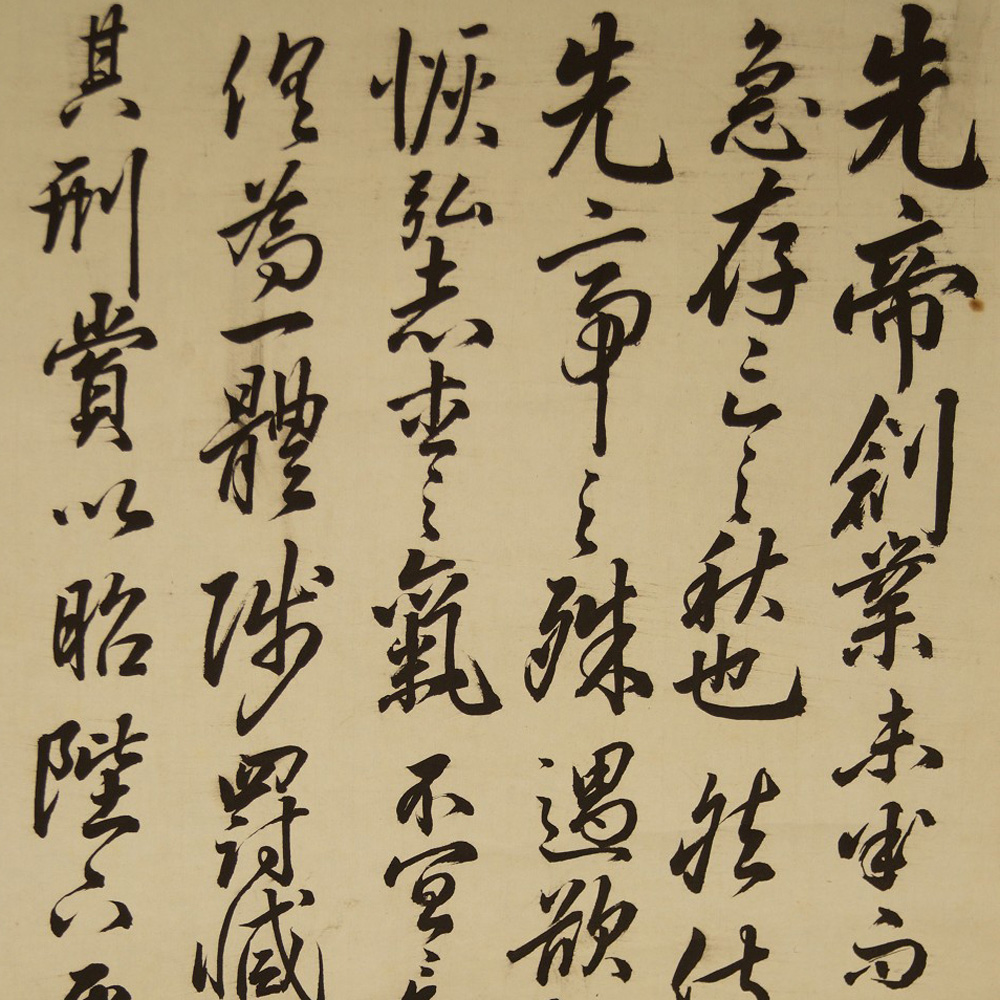 先帝創業未半而
急存亡之秋也然侍
先帝之殊遇欲
恢弘志士之氣不宜
俱為一體陟罰臧
其刑賞以昭陛下